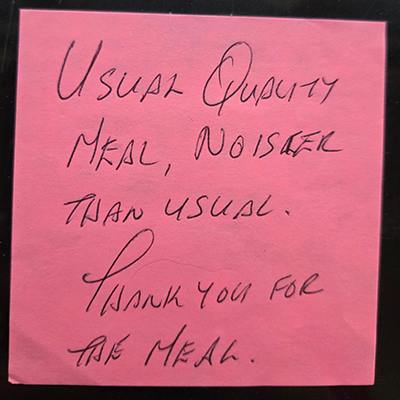 Usual Quality
Meal, Noisier
than usual.
Thank you for
the meal.